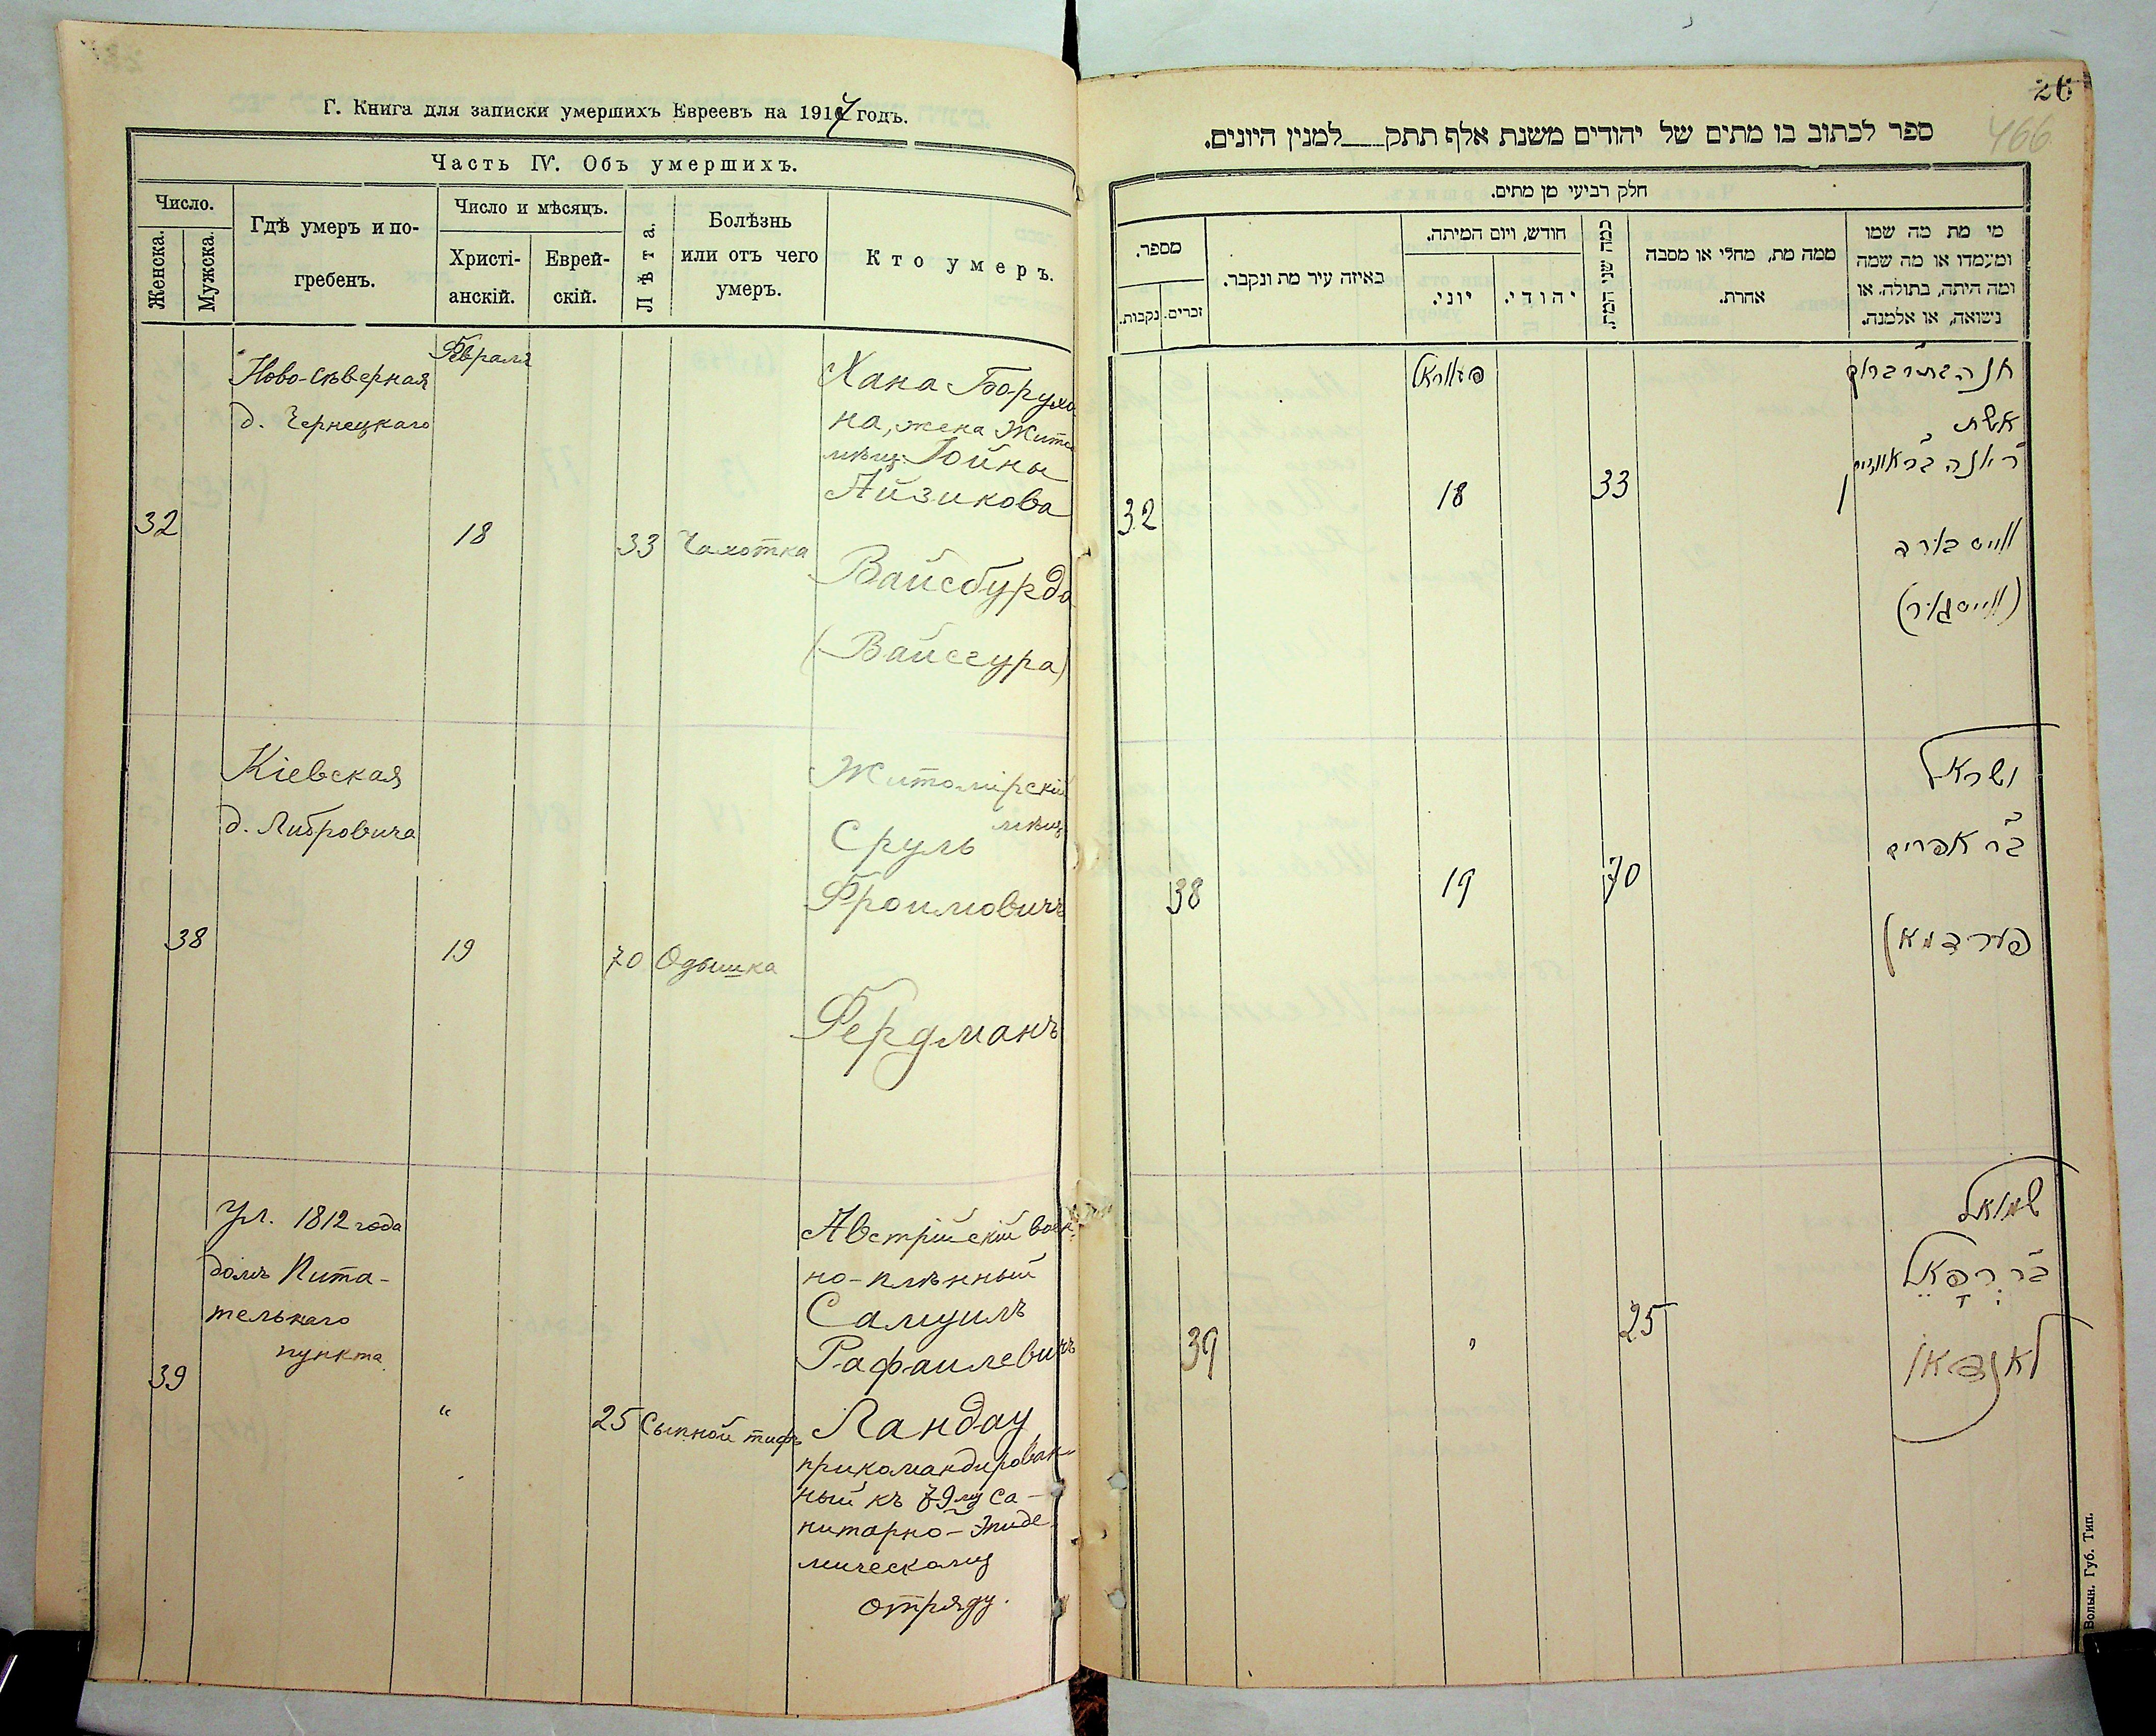 Г. Книга для записки умершихъ Евреевъ на 1917 годъ.
Часть IV. Объ умершихъ.
Число.
Женска.
Мужска.
Гдѣ умеръ и по-
гребенъ.
Число и мѣсяцъ.
Христі-
анскій.
Еврей-
скій.
Лѣта.
Болѣзнь
или отъ чего
умеръ.
Кто умеръ.
32
Ново-Сѣверная
д. Чернецкаго
Февраля
18
33
Чахотка
Хана Борухо-
на, жена Жит.
мѣщ. Іойны
Айзикова
Вайсбурда
(Вайсгура)
38
Кіевская
д. Либровича
19
70
Одышка
Житомірскій
мѣщ.
Сруль
Фроимовичъ
Фердманъ
39
Ул. 1812 года
домъ Пита-
тельнаго
пункта
"
25
Сыпной тифъ
Австрійскій воен-
но-плѣнный
Самуилъ
Рафаилевичъ
Ландау
прикомандирован-
ный къ 79му Са-
нитарно-Эпиде-
мическому
отряду.
26
466
ספר לכתוב בו מתים של יהודים משנת אלף תתק___למנין היונים.
חלק רביעי מן מתים.
מספר.
נקבות.
זכרים.
באיזה עיר מת ונקבר.
חודש, ויום המיתה.
יוני.
יהודי.
כמה שני המת.
ממה מת, מחלי או מסבה
אחרת.
מי מת מה שמו
ומעמדו או מה שמה
ומה היתה, בתולה. או
נשואה, או אלמנה.
32
18
33
אשת
ווייסבורד
(ווייסגור)
38
19
70
ישראל
בר אפרים
פערדמאן
39
"
25
שמואל
בר רפאל
לאנדאו
Волын. Губ. Тип.